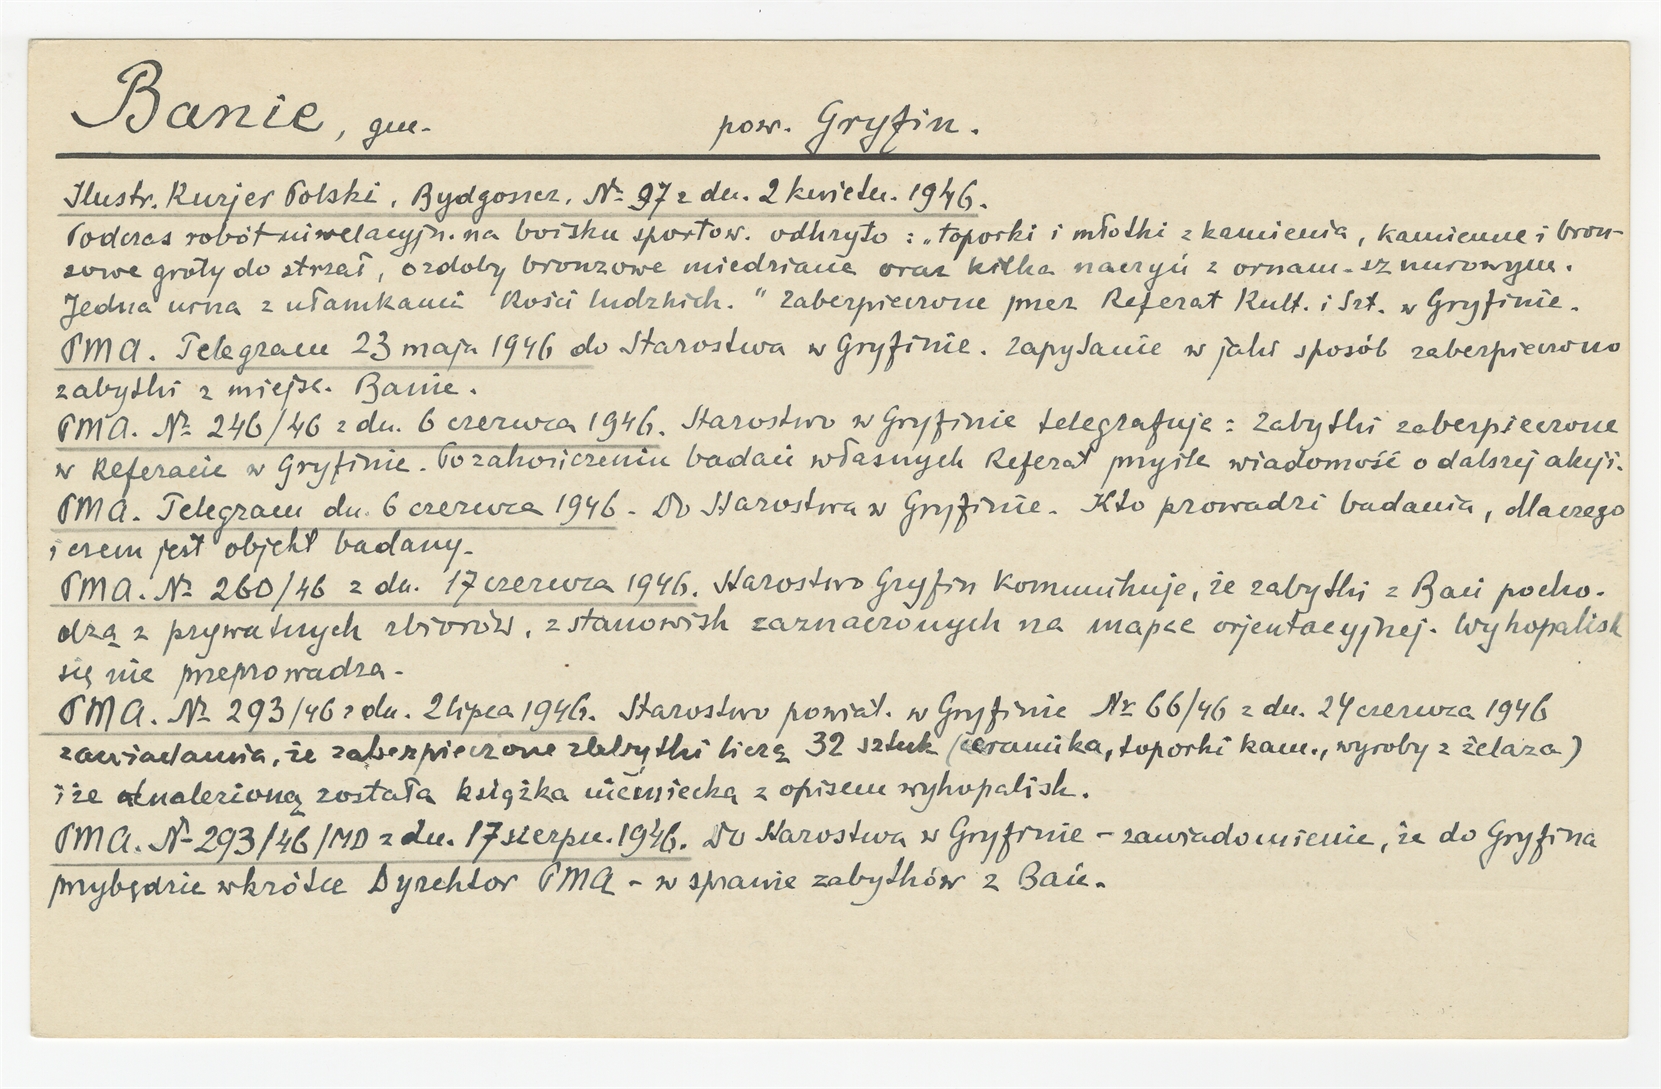 Banie, gm. pow. Gryfin.
Ilustr. Kurjer Polski, Bydgoszcz, Nr 97 z dn. 2 kwietn. 1946.
Podczas robót niwelacyjn. na boisku sportow. odkryto : „toporki i młotki z kamienia, kamienne i bron-
zowe groty do strzał, ozdoby bronzowe miedziane oraz kilka naczyń z ornam. sznurowym.
Jedna urna z ułamkami kości ludzkich." Zabezpieczone przez Referat Kult. i Szt. w Gryfinie.
PMA. Telegram 23 maja 1946 do Starostwa w Gryfinie. Zapytanie w jaki sposób zabezpieczono
zabytki z miejsc. Banie.
PMA. Nr 246/46 z dn. 6 czerwca 1946. Starostwo w Gryfinie telegrafuje : Zabytki zabezpieczone
w Referacie w Gryfinie. Po zakończeniu badań własnych Referat przyśle wiadomość o dalszej akcji.
PMA. Telegram dn. 6 czerwca 1946. Do Starostwa w Gryfinie. Kto prowadzi badania, dlaczego
i czem jest objekt badany.
PMA. Nr 260/46 z dn. 17 czerwca 1946. Starostwo Gryfin komunikuje, że zabytki z Bań pocho-
dzą z prywatnych zbiorów, z stanowisk zaznaczonych na mapce orjentacyjnej. Wykopalisk
się nie przeprowadza.
PMA. Nr 293/46 z dn. 2 lipca 1946. Starostwo powiat. w Gryfinie Nr 66/46 z dn. 24 czerwca 1946
zawiadamia, że zabezpieczone zabytki liczą 32 sztuk (ceramika, toporki kam., wyroby z żelaza)
i że odnalezioną została książka niemiecka z opisem wykopalisk.
PMA. Nr 293/46/MD z dn. 17 sierpn. 1946. Do Starostwa w Gryfinie – zawiadomienie, że do Gryfina
przybędzie wkrótce Dyrektor PMA – w sprawie zabytków z Bań.